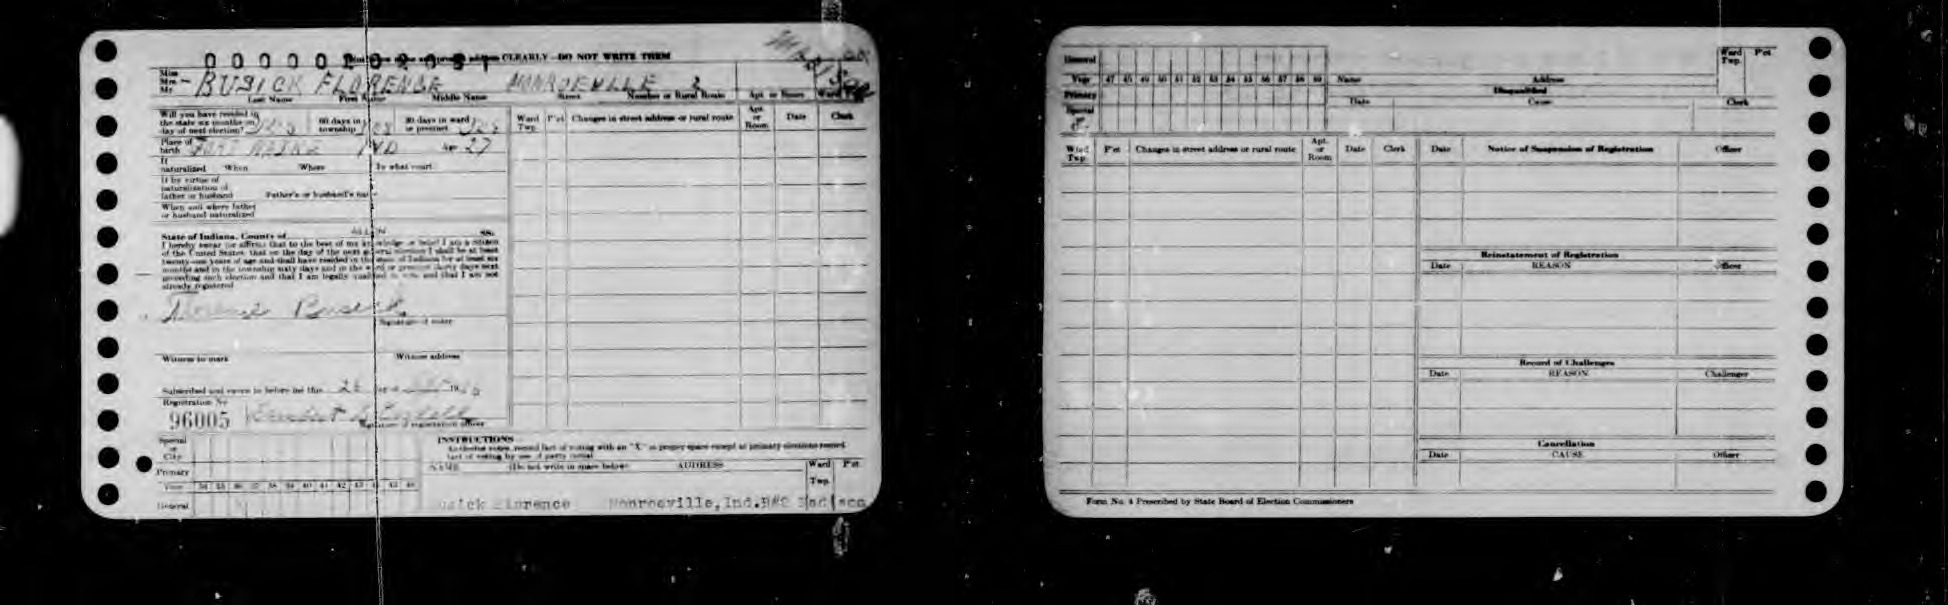 CLEARLY—DO NOT WRITE THEM
Miss
Mrs. BUSICK FLORENCE MONROEVILLE 2
Mr.
Last Name First Name Middle Name Street Number or Rural Route Apt. or Room Ward
Will you have resided in
the state six months on 60 days in 30 days in ward
day of next election? township or precinct
Place of
birth FORT WAYNE IND Age 27
If
naturalized When Where In what court
If by virtue of
naturalization of
father or husband Father's or husband's
When and where father
or husband naturalized
State of Indiana, County of ALLEN ss.
I hereby swear (or affirm) that to the best of my knowledge or belief I am a citizen
of the United States, that on the day of the next general election I shall be at least
twenty-one years of age and shall have resided in the state of Indiana for at least six
months and in the township sixty days and in the ward or precinct thirty days next
preceding such election and that I am legally qualified to vote and that I am not
already registered
Florence Busick
Signature of voter
Witness to mark Witness address
Subscribed and sworn to before me this 26 day of 19
Registration No
96005
Signature of registration officer
Ward
Twp. P'ct Changes in street address or rural route Apt.
or
Room Date Clerk
Special
or
City
Primary
Year 34 35 36 37 38 39 40 41 42 43 44 45 46
General
INSTRUCTIONS
NAME (Do not write in space below) ADDRESS Ward P'ct.
Twp.
Florence Monroeville, Ind. R#2
General
Year 47 48 49 50 51 52 53 54 55 56 57 58 59 Name Address Ward
Twp. P'ct.
Primary Disqualified
Special Date Cause Clerk
Ward
Twp. P'ct Changes in street address or rural route Apt.
or
Room Date Clerk Date Notice of Suspension of Registration Officer
Reinstatement of Registration
Date REASON Officer
Record of Challenges
Date REASON Challenger
Cancellation
Date CAUSE Officer
Form No. 4 Prescribed by State Board of Election Commissioners